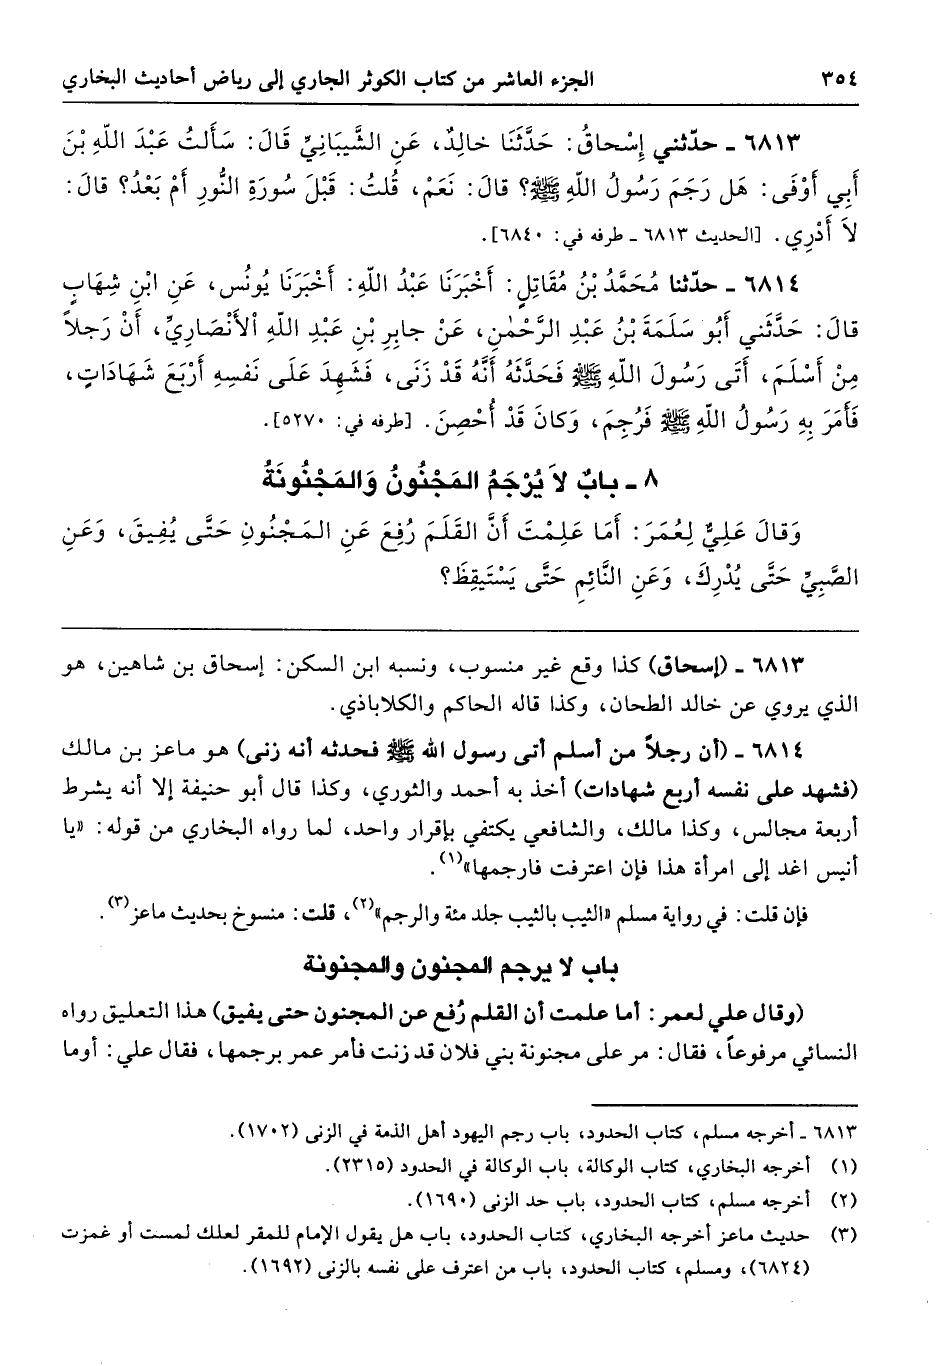 ٣٥٤ الجزء العاشر من كتاب الكوثر الجاري إلى رياض أحاديث البخاري
٦٨١٣ ـ حدّثني إِسْحاقُ: حَدَّثَنَا خالِدٌ، عَنِ الشَّيبَانِيِّ قَالَ: سَأَلتُ عَبْدَ اللّهِ بْنَ
أَبِي أَوْفَى: هَل رَجَمَ رَسُولُ اللّهِ ﷺ؟ قالَ: نَعَمْ، قُلتُ: قَبْلَ سُورَةِ النُّورِ أَمْ بَعْدُ؟ قالَ:
لاَ أَدْرِي. [الحديث ٦٨١٣ ـ طرفه في: ٦٨٤٠].
٦٨١٤ ـ حدّثنا مُحَمَّدُ بْنُ مُقَاتِلٍ: أَخْبَرَنَا عَبْدُ اللّهِ: أَخْبَرَنَا يُونُس، عَنِ ابْنِ شِهَابٍ
قالَ: حَدَّثَنِي أَبُو سَلَمَةَ بْنُ عَبْدِ الرَّحْمٰنِ، عَنْ جابِرِ بْنِ عَبْدِ اللّهِ الأَنْصَارِيِّ، أَنَّ رَجلاً
مِنْ أَسْلَمَ، أَتَى رَسُولَ اللّهِ ﷺ فَحَدَّثَهُ أَنَّهُ قَدْ زَنَى، فَشَهِدَ عَلَى نَفسِهِ أَرْبَعَ شَهَادَاتٍ،
فَأَمَرَ بِهِ رَسُولُ اللّهِ ﷺ فَرُجِمَ، وَكانَ قَدْ أُحْصِنَ. [طرفه في: ٥٢٧٠].
٨ ـ بابٌ لاَ يُرْجَمُ المَجْنُونُ وَالمَجْنُونَةُ
وَقالَ عَلِيٌّ لِعُمَرَ: أَمَا عَلِمْتَ أَنَّ القَلَمَ رُفِعَ عَنِ المَجْنُونِ حَتَّى يُفِيقَ، وَعَنِ
الصَّبِيِّ حَتَّى يُدْرِكَ، وَعَنِ النَّائِمِ حَتَّى يَسْتَيقِظَ؟
٦٨١٣ ـ (إسحاق) كذا وقع غير منسوب، ونسبه ابن السكن: إسحاق بن شاهين، هو
الذي يروي عن خالد الطحان، وكذا قاله الحاكم والكلاباذي.
٦٨١٤ ـ (أن رجلاً من أسلم أتى رسول الله ﷺ فحدثه أنه زنى) هو ماعز بن مالك
(فشهد على نفسه أربع شهادات) أخذ به أحمد والثوري، وكذا قال أبو حنيفة إلا أنه يشرط
أربعة مجالس، وكذا مالك، والشافعي يكتفي بإقرار واحد، لما رواه البخاري من قوله: «يا
أنيس اغد إلى امرأة هذا فإن اعترفت فارجمها»(١).
فإن قلت: في رواية مسلم «الثيب بالثيب جلد مئة والرجم»(٢)، قلت: منسوخ بحديث ماعز(٣).
باب لا يرجم المجنون والمجنونة
(وقال علي لعمر: أما علمت أن القلم رُفع عن المجنون حتى يفيق) هذا التعليق رواه
النسائي مرفوعاً، فقال: مر على مجنونة بني فلان قد زنت فأمر عمر برجمها، فقال علي: أوما
٦٨١٣ ـ أخرجه مسلم، كتاب الحدود، باب رجم اليهود أهل الذمة في الزنى (١٧٠٢).
(١) أخرجه البخاري، كتاب الوكالة، باب الوكالة في الحدود (٢٣١٥).
(٢) أخرجه مسلم، كتاب الحدود، باب حد الزنى (١٦٩٠).
(٣) حديث ماعز أخرجه البخاري، كتاب الحدود، باب هل يقول الإمام للمقر لعلك لمست أو غمزت
(٦٨٢٤)، ومسلم، كتاب الحدود، باب من اعترف على نفسه بالزنى (١٦٩٢).